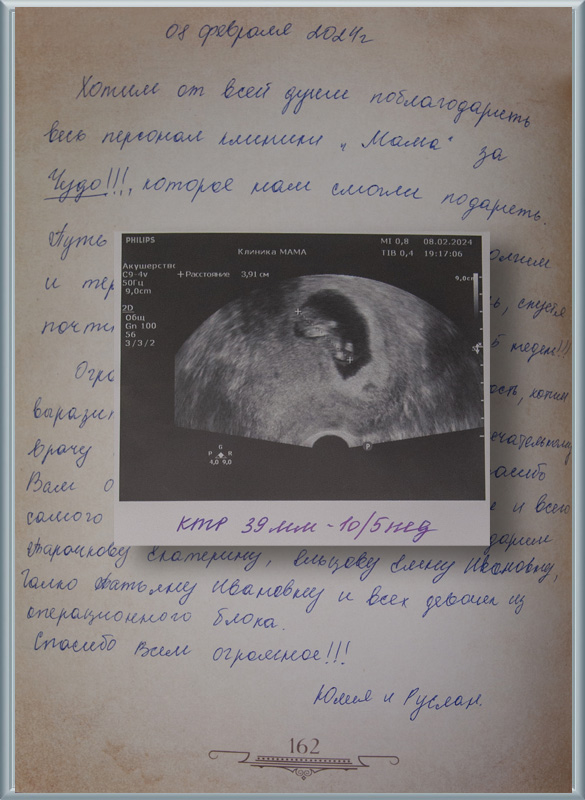 08 февраля 2024г
Хотим от всей души поблагодарить
весь персонал клиники „Мама" за
Чудо!!!, которое нам смогли подарить.
Путь
и тер
почти
5 недель!!!
Огро
ость, хотим
вырази
ечательному
врачу
асибо
Вам о
е и всего
самого
PHILIPS
Клиника МАМА
MI 0,8 08.02.2024
TIB 0,4 19:17:06
Акушерстве
C9-4v
50Гц
9,0cm
+ Расстояние 3,91 см
9,0см
2D
Общ
Gn 100
56
3/3/2
G
P R
4,0 9,0
P
КТР 39 мм - 10/5 нед
Екатерину, Ельцову Елену Ивановну,
Галко Татьяну Ивановну и всех девочек из
операционного блока.
Спасибо Вам огромное!!!
Юлия и Руслан.
162